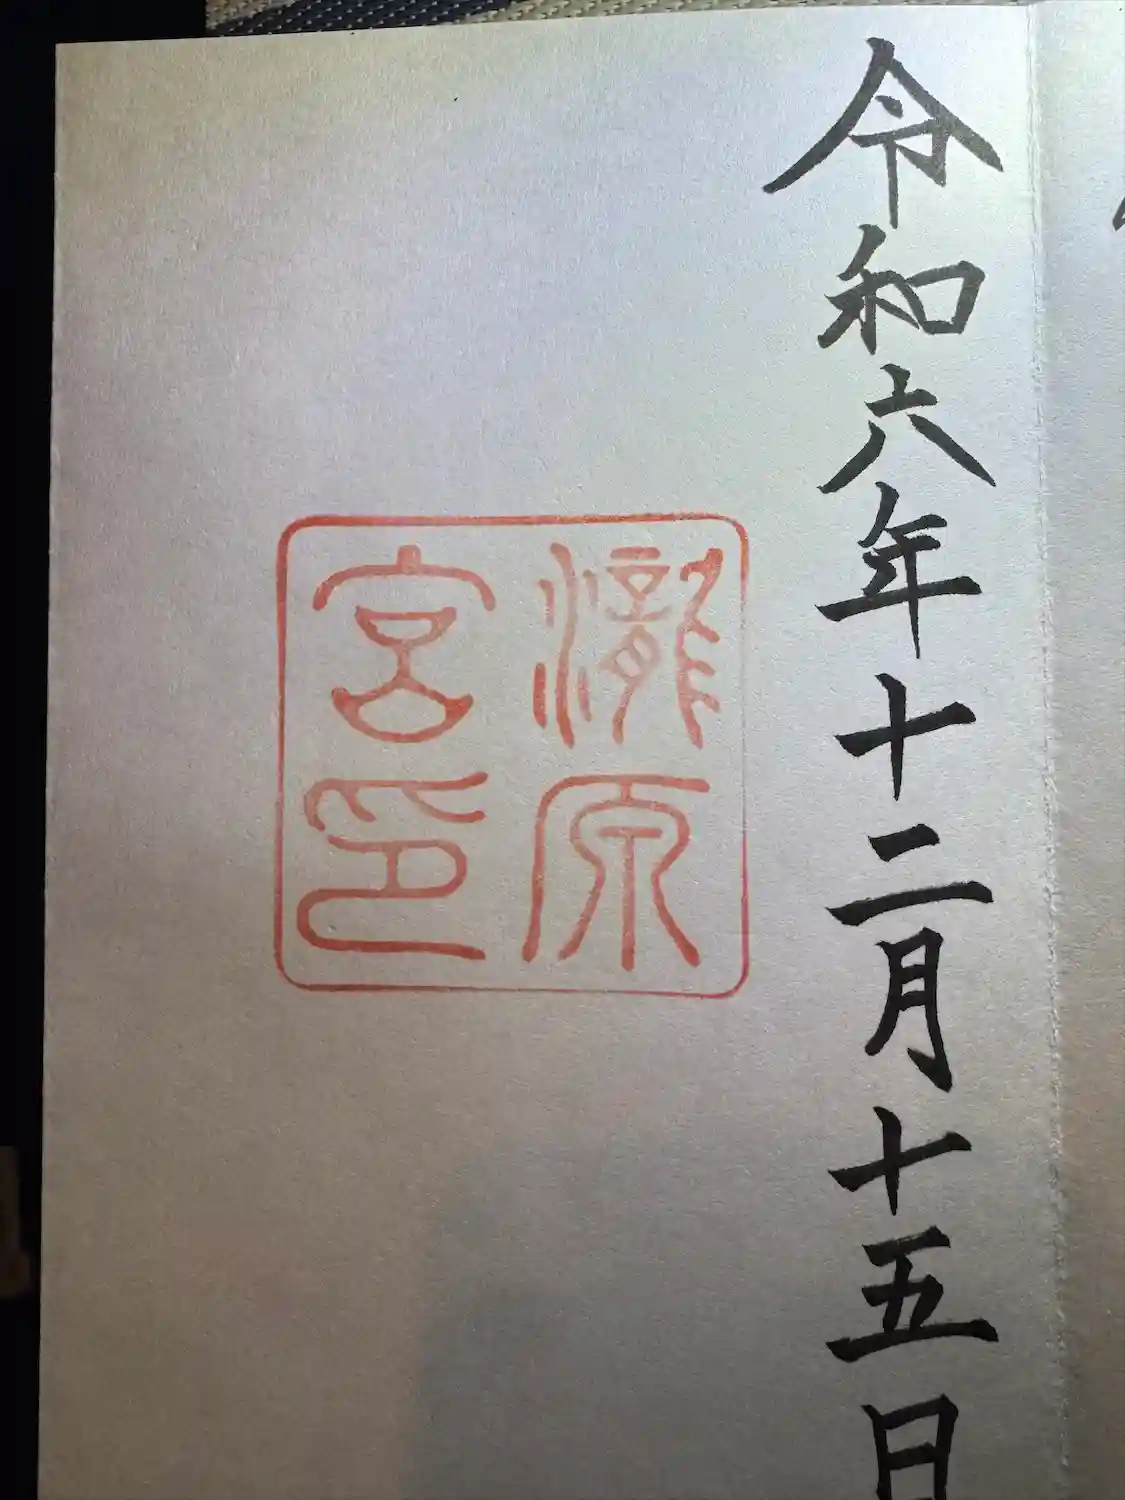 令和六年十二月十五日
瀧原
宮印